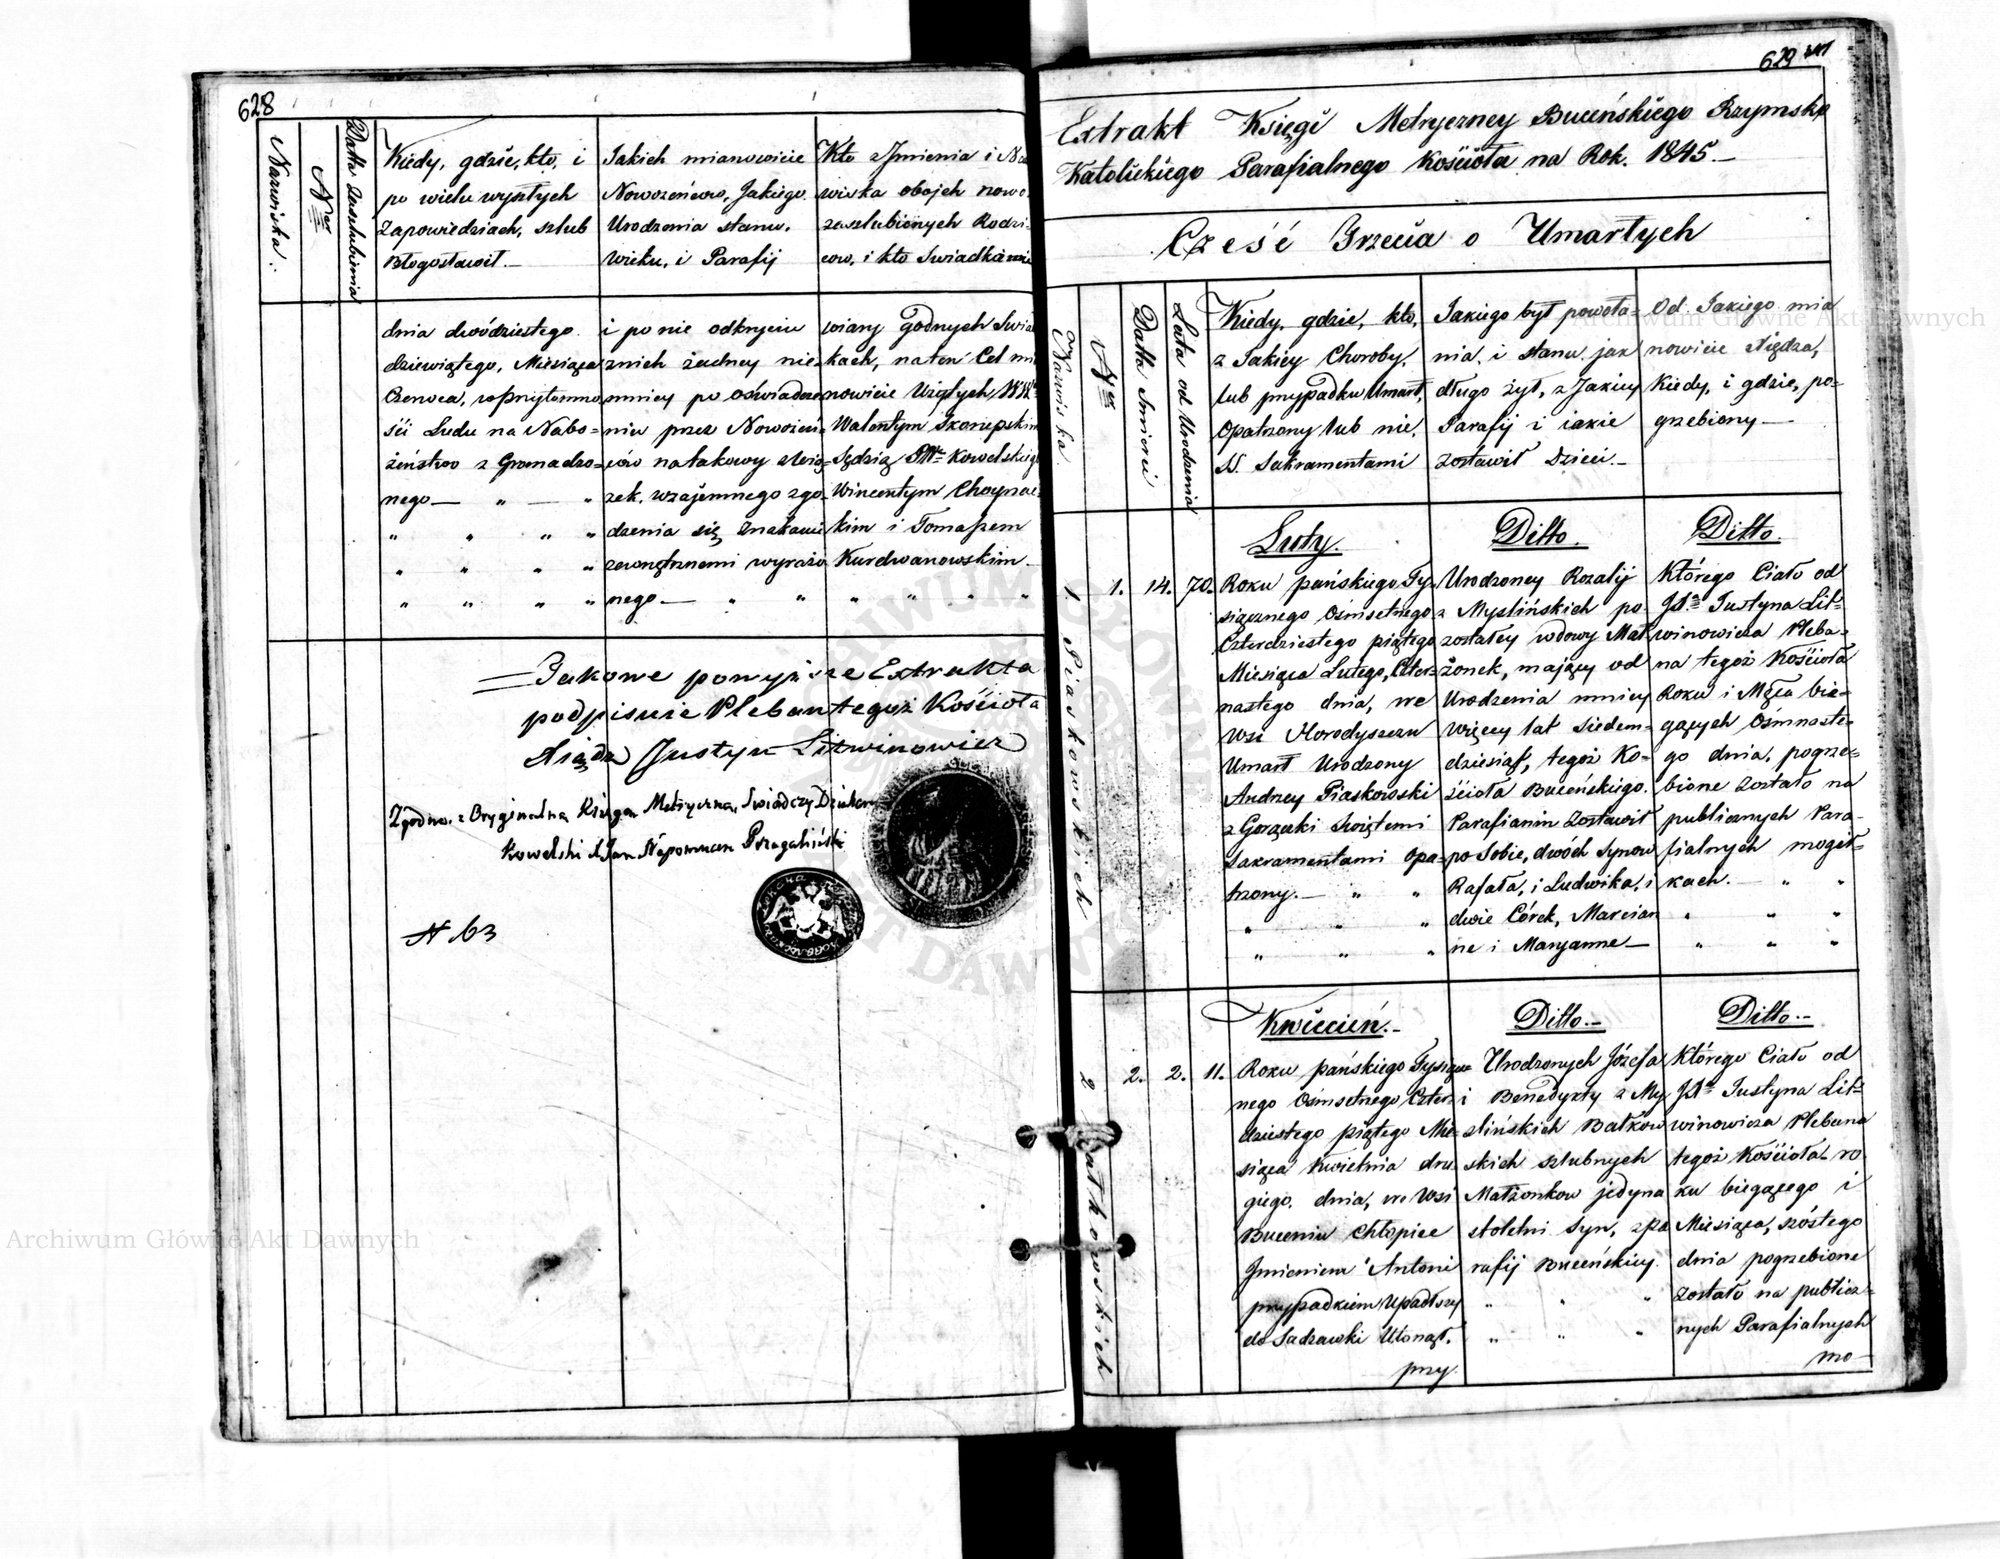 628
Nazwiska.
Nro
Datta Zaszlubienia
Kiedy, gdzie, kto, i
po wielu wyszłych
Zapowiedziach, szlub
Błogosławił.—
Jakich mianowicie
Nowożeńców, Jakiego
Urodzenia stanu,
Wieku, i Parafij
Kto z Jmienia i Na
wiska obojch nowo
zaszlubionych Rodzi-
cow, i kto Swiadkami
dnia dwódziestego
dziewiątego, Miesiąca
Czerwca, w przytomno
ści Ludu na Nabo-
żeństwo z Gromadzo-
nego — „ — „
„ „ „ „
„ „ „ „
„ „ „ „
i po nie odkryciu
znich żadney nie-
mniey po oświadcze
niu przez Nowożeń-
ców na takowy zwią-
zek, wzajemnego zgo-
dzenia się znakami
zewnętrznemi wyrażo
nego — „ „
wiary godnych Swia
kach, na ten Cel mi
nowicie Wziętych WW
Walentym Skorupskim
Sędzią Kowelskiego
Wincentym Choynac-
kim i Tomaszem
Kurdwanowskim.
„ „ „ „
Jakowe powyższe Extrakta
podpisuie Pleban tegoż Kościoła
Xiądz Justyn Litwinowicz
Zgodno z Oryginalną Księgą Metryczną, Swiadczy Dziekan
Kowelski X Jan Nepomucen Przegaliński
N 63
629
Extrakt Księgi Metryczney Buceńskiego Rzymsko
Katolickiego Parafialnego Kościoła na Rok. 1845—
Część Trzecia o Umarłych
Nazwiska
Nro
Datta Smierci
Lata od Urodzenia
Kiedy, gdzie, kto,
z Jakiey Choroby,
lub przypadku Umarł,
Opatrzony lub nie,
SS. Sakramentami
Jakiego był powoła-
nia, i stanu, jak
długo żył, z Jakiey
Parafij i iakie
zostawił Dzieci.—
Od Jakiego mia
nowicie Xiędza,
Kiedy, i gdzie, po-
grzebiony —
1. Piaskowskich
1. 14. 70.
Luty.
Roku pańskiego Ty-
siącznego Osmsetnego
Czterdziestego piątego
Miesiąca Lutego, Czter-
nastego dnia, we
Wsi Horodyszczu
Umarł Urodzony
Andrzey Piaskowski
z Gorączki Swiętemi
Sakramentami Opa-
trzony.— „ „
„ „ „
„ „ „
Ditto.
Urodzoney Rozalij
z Myslińskich po-
zostałey wdowy Mał
żonek, mający od
Urodzenia mniey
więcey lat siedem-
dziesiąt, tegoż Ko-
ścioła Buceńskiego
Parafianin zostawił
po Sobie, dwóch Synow
Rafała, i Ludwika, i
dwie Córek, Marcian
ne i Maryanne—
Ditto.
Którego Ciało od
Justyna Lit-
winowicza Pleba-
na tegoż Kościoła
Roku i Mśca bie-
gących Osmnaste-
go dnia, pogrze-
bione zostało na
publicznych Para-
fialnych mogił-
kach.— „ „
„ „ „
„ „ „
2 Batkowskich
2. 2. 11.
Kwiecień.—
Roku pańskiego Tysiącz-
nego Osmsetnego Czter-
dziestego piątego Mie-
siąca Kwietnia dru-
giego dnia, we Wsi
Buceniu Chłopiec
Jmieniem Antoni
przypadkiem Upadłszy
do Sadzawki Utonął.
przy
Ditto.—
Urodzonych Józefa
i Benedykty z My-
slińskich Batkow
skich szlubnych
Małżonkow jedyna
stoletni Syn, z pa
rafij Buceńskiey.
„ „ „
„ „ „
Ditto.—
Którego Ciało od
Justyna Lit-
winowicza Plebana
tegoż Kościoła ro
ku biegącego i
Miesiąca, szóstego
dnia pogrzebione
zostało na publicz-
nych Parafialnych
mo—
Archiwum Główne Akt Dawnych
Archiwum Główne Akt Dawnych
ARCHIWUM GŁÓWNE AKT DAWNYCH